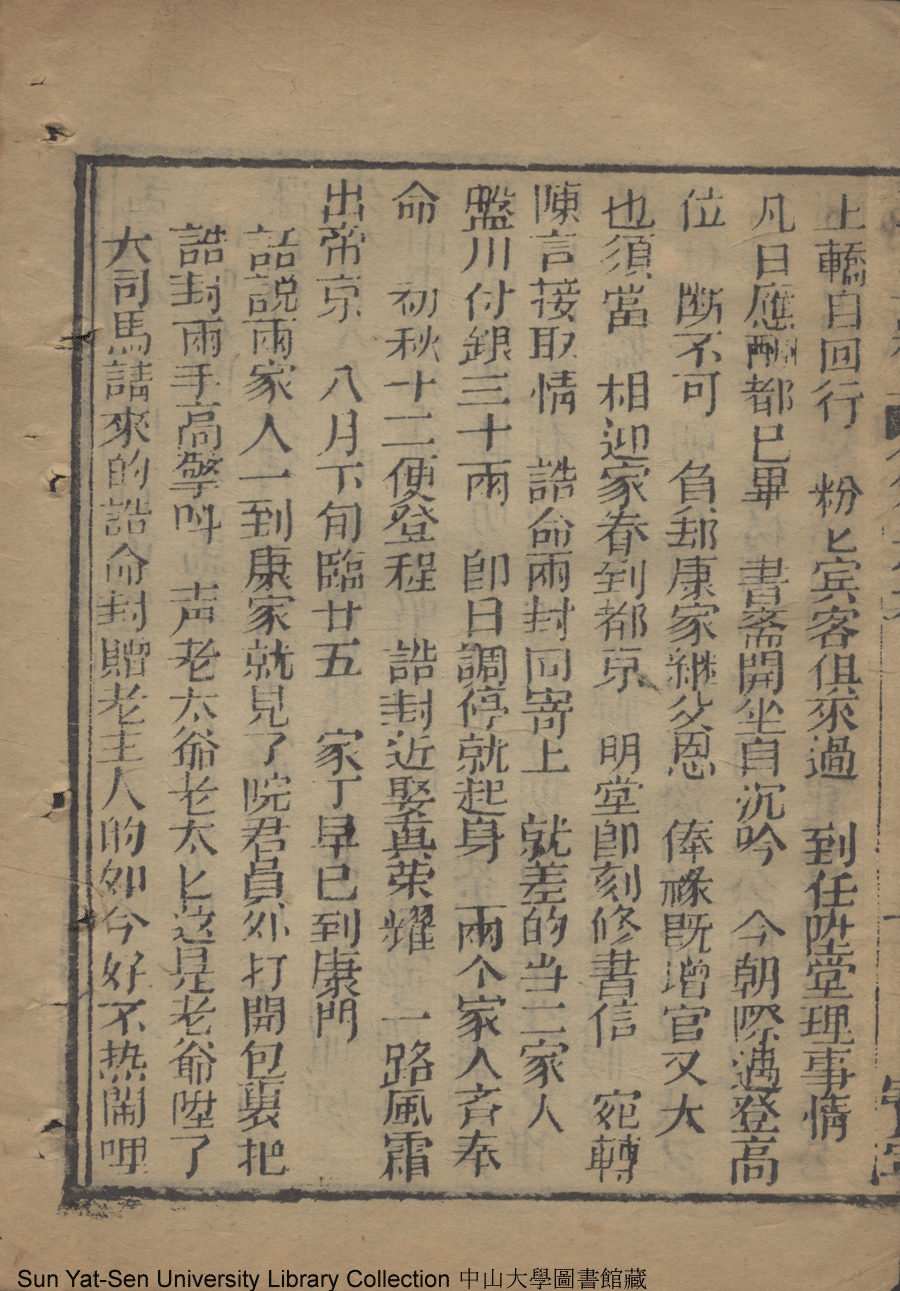 上轎自回行　粉匕宾客俱來過　到任陞堂理事情
凡日應酧都已畢　書斋開坐自沉吟　今朝際遇登高
位　断不可　負郑康家継父恩　俸祿既增官又大
也須當　相迎家眷到都京　明堂即刻修書信　宛轉
陳言接取情　誥命兩封回寄上　就差的当二家人
盤川付銀三十兩　即日調停就起身　兩个家人斉奉
命　初秋十二便登程　誥封近娶真荣耀　一路風霜
出帝京　八月下旬臨廿五　家丁早已到康門
話說兩家人一到康家就見了院君員外打開包裏把
誥封兩手高擎呌　声老太爺老太匕这是老爺陞了
大司馬請來的誥命封贈老主人的如今好不热鬧哩
Sun Yat-Sen University Library Collection 中山大學圖書館藏